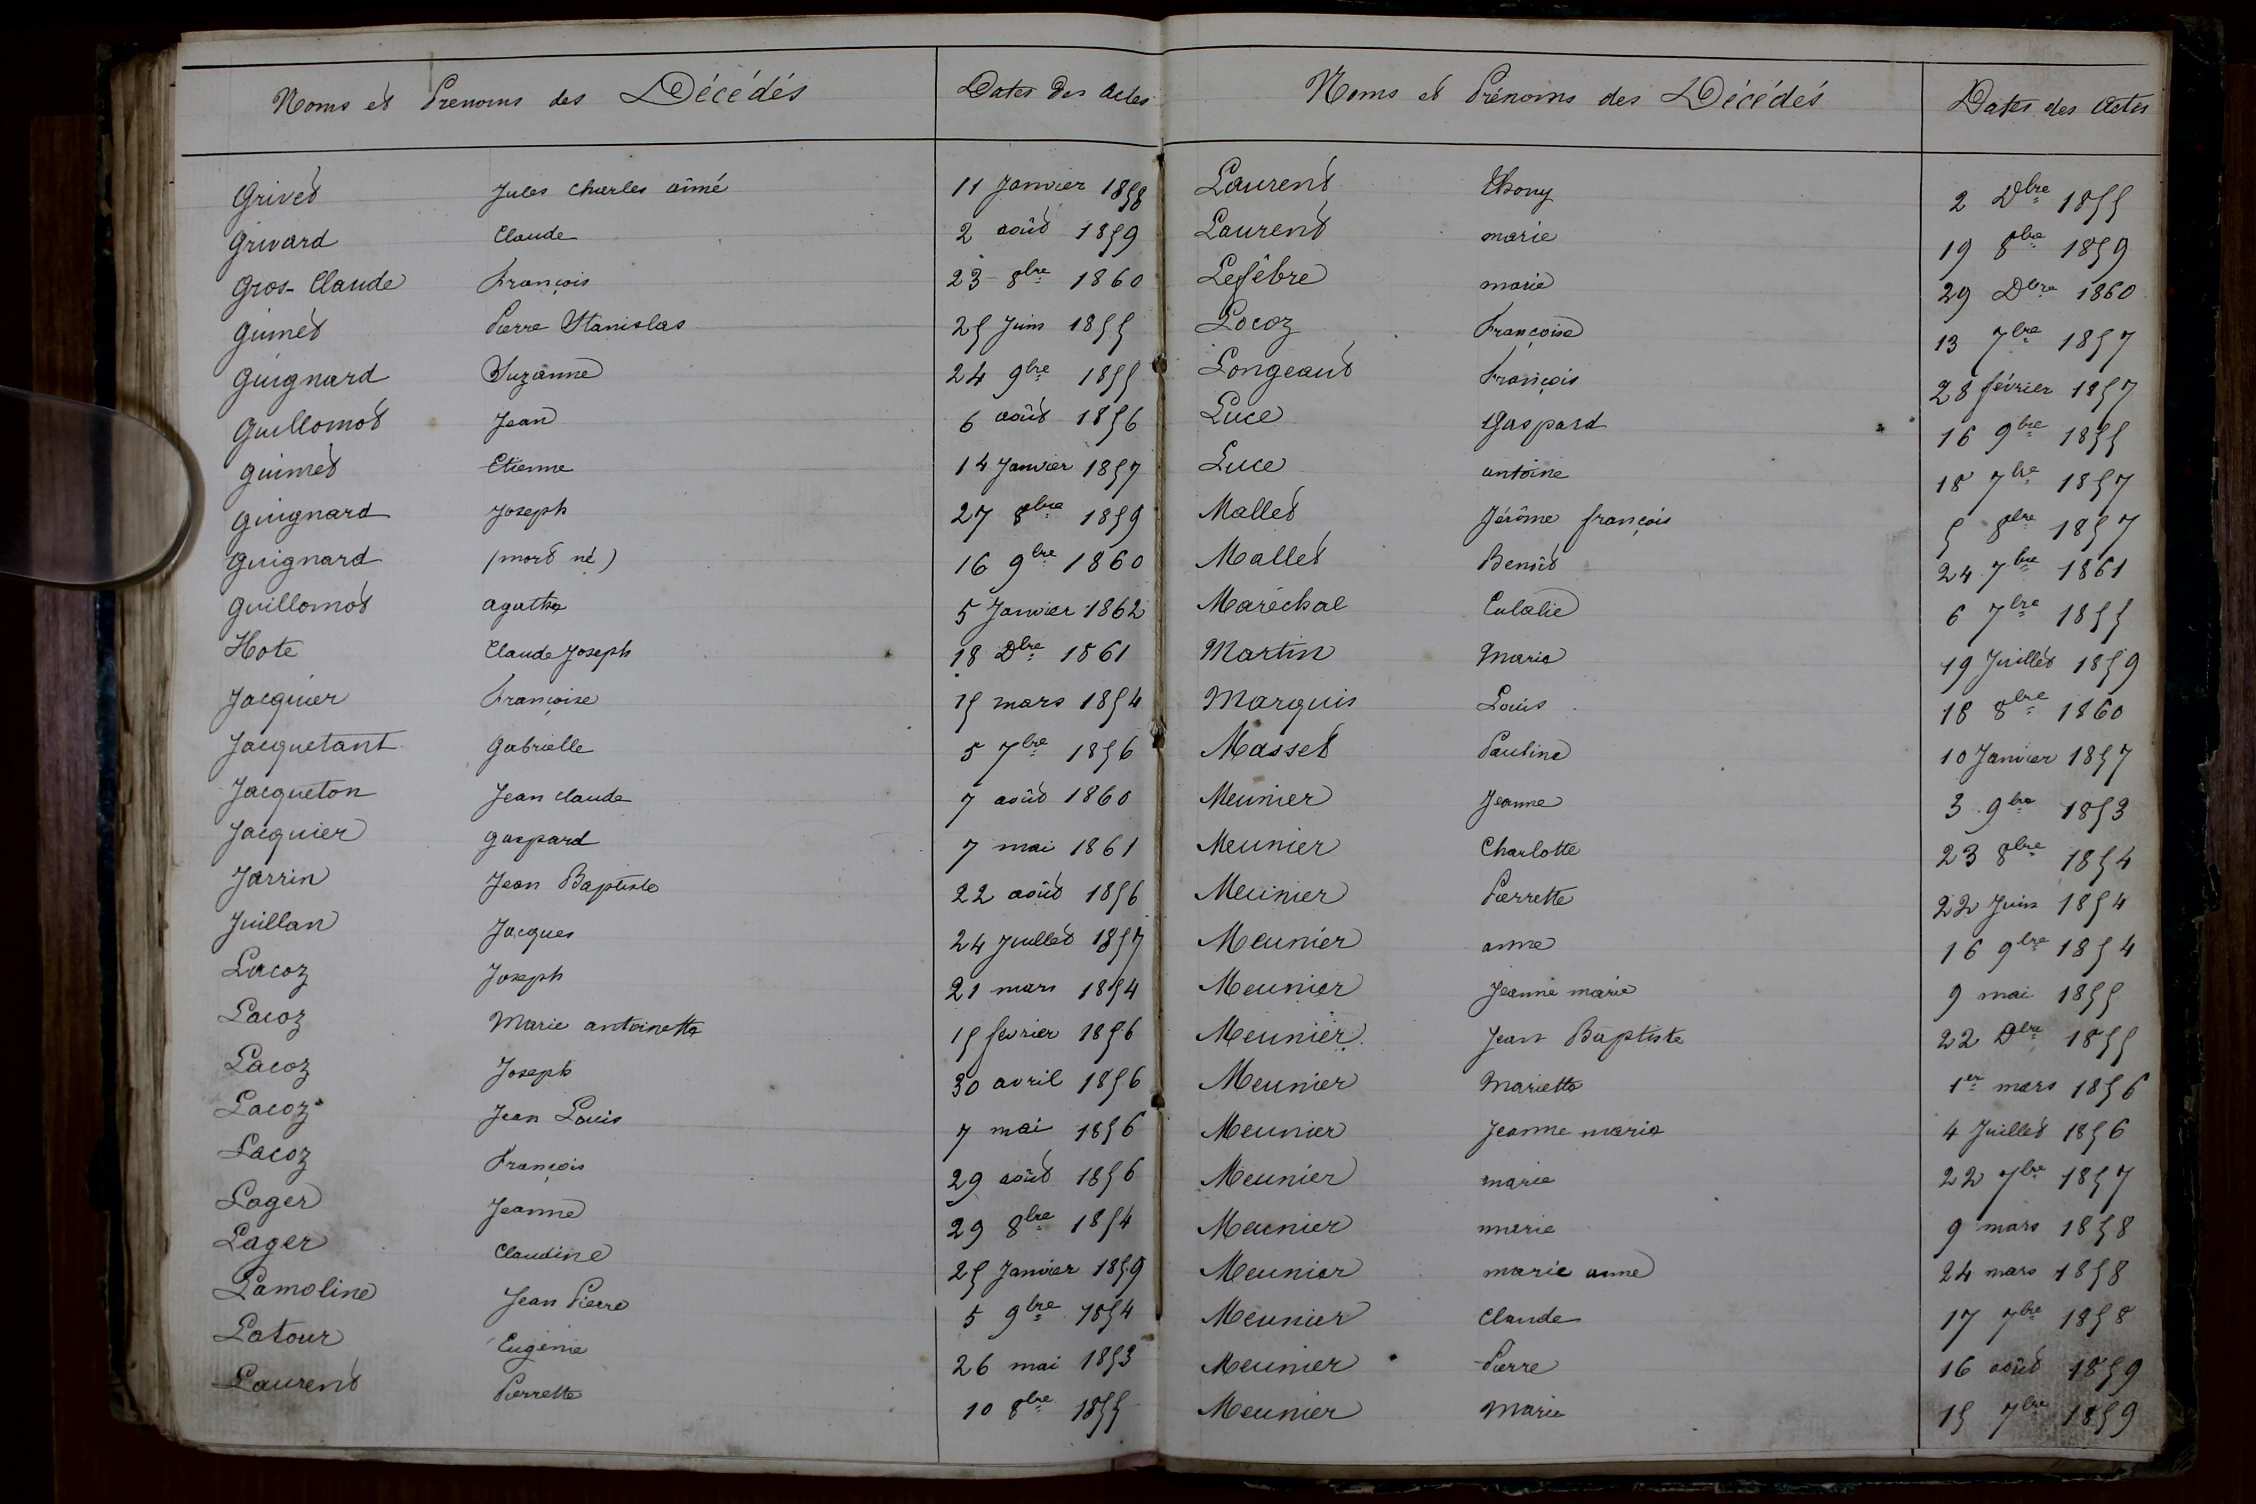 Noms et Prenoms des Décédés Dates des Actes
Grivet Jules Charles aimé 11 Janvier 1858
Grivard Claude 2 août 1859
Gros-Claude François 23 8bre 1860
Guimet Pierre Stanislas 25 Juin 1855
Guignard Suzanne 24 9bre 1855
Guillomot Jean 6 août 1856
Guimet Etienne 14 Janvier 1857
Guignard Joseph 27 8bre 1859
Guignard (mort né) 16 9bre 1860
Guillomot agathe 5 Janvier 1862
Hote Claude Joseph 18 Dbre 1861
Jacquier Françoise 15 mars 1854
Jacquetant Gabrielle 5 7bre 1856
Jacqueton Jean Claude 7 août 1860
Jacquier gaspard 7 mai 1861
Jarrin Jean Baptiste 22 août 1856
Juillan Jacques 24 Juillet 1857
Lacoz Joseph 21 mars 1854
Lacoz Marie antoinette 15 fevrier 1856
Lacoz Joseph 30 avril 1856
Lacoz Jean Louis 7 mai 1856
Lacoz François 29 août 1856
Lager Jeanne 29 8bre 1854
Lager Claudine 25 Janvier 1859
Lamoline Jean Pierre 5 9bre 1854
Latour Eugénie 26 mai 1853
Laurent Pierrette 10 8bre 1855
Noms et Prénoms des Décédés Dates des Actes
Laurent Thony 2 Dbre 1855
Laurent marie 19 8bre 1859
Lefêbre marie 29 Dbre 1860
Locoz Françoise 13 7bre 1857
Longeaut François 28 février 1857
Luce Gaspard 16 9bre 1855
Luce antoine 18 7bre 1857
Mallet Jérôme françois 5 8bre 1857
Mallet Benoit 24 7bre 1861
Maréchal Eulalie 6 7bre 1855
Martin Marie 19 Juillet 1859
Marquis Louis 18 8bre 1860
Masset Pauline 10 Janvier 1857
Meunier Jeanne 3 9bre 1853
Meunier Charlotte 23 8bre 1854
Meunier Pierrette 22 Juin 1854
Meunier anne 16 9bre 1854
Meunier Jeanne marie 9 mai 1855
Meunier Jean Baptiste 22 Dbre 1855
Meunier Mariette 1er mars 1856
Meunier Jeanne marie 4 Juillet 1856
Meunier marie 22 7bre 1857
Meunier marie 9 mars 1858
Meunier marie anne 24 mars 1858
Meunier Claude 17 7bre 1858
Meunier Pierre 16 août 1859
Meunier Marie 15 7bre 1859